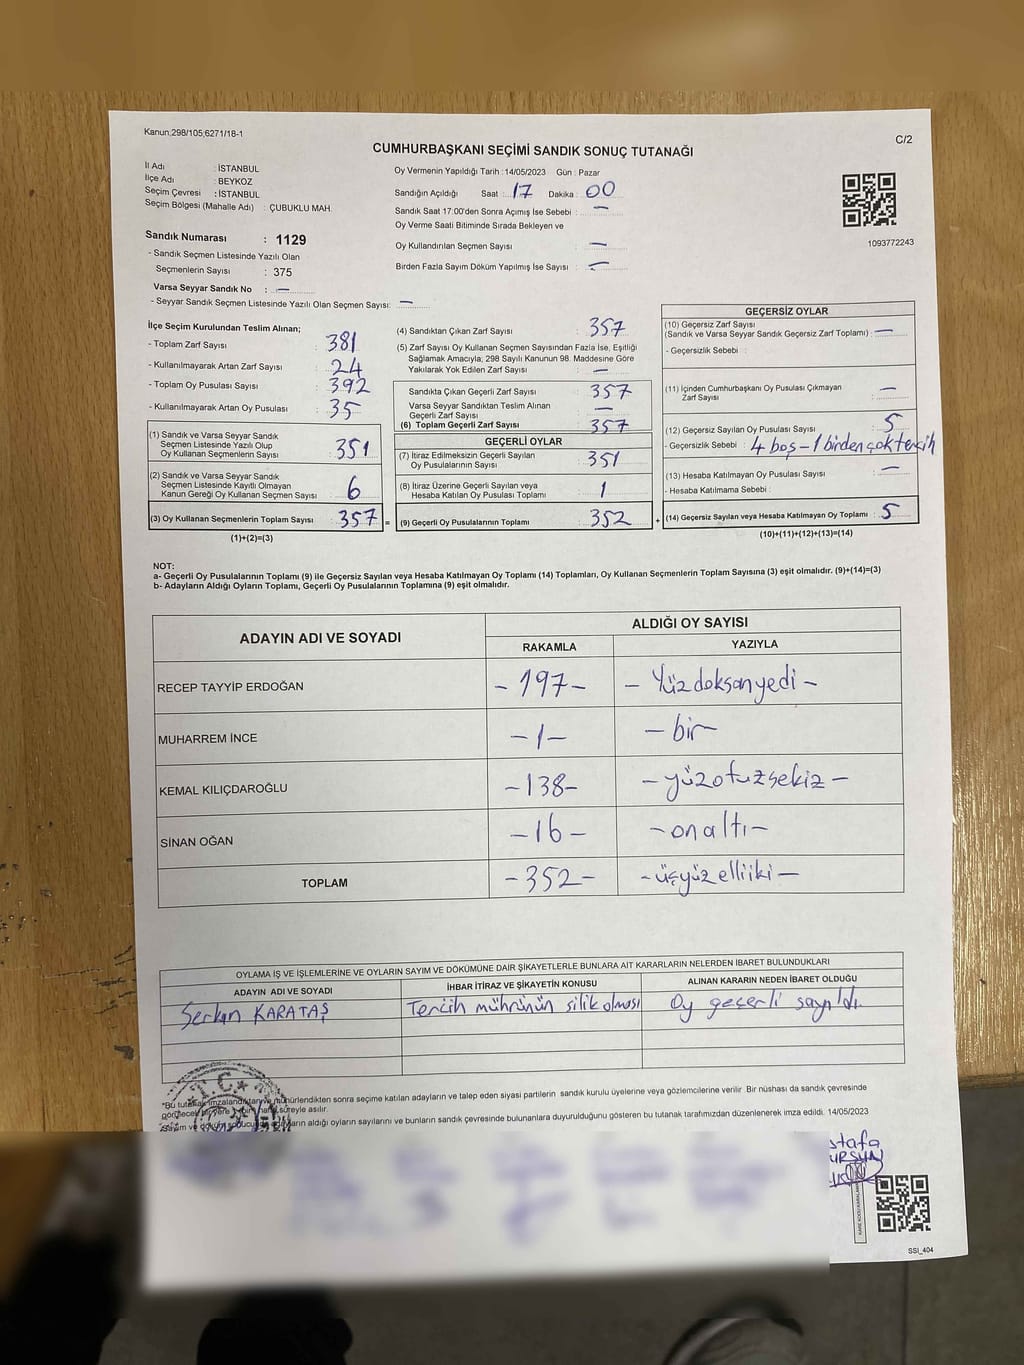 Kanun,298/105,6271/18-1
C/2
CUMHURBAŞKANI SEÇİMİ SANDIK SONUÇ TUTANAĞI
İl Adı : İSTANBUL
İlçe Adı : BEYKOZ
Seçim Çevresi : İSTANBUL
Seçim Bölgesi (Mahalle Adı) : ÇUBUKLU MAH.
Sandık Numarası : 1129
- Sandık Seçmen Listesinde Yazılı Olan
Seçmenlerin Sayısı : 375
Varsa Seyyar Sandık No : —
- Seyyar Sandık Seçmen Listesinde Yazılı Olan Seçmen Sayısı: —
Oy Vermenin Yapıldığı Tarih : 14/05/2023 Gün : Pazar
Sandığın Açıldığı Saat : 17 Dakika : 00
Sandık Saat 17:00'den Sonra Açımış İse Sebebi : —
Oy Verme Saati Bitiminde Sırada Bekleyen ve
Oy Kullandırılan Seçmen Sayısı : —
Birden Fazla Sayım Döküm Yapılmış İse Sayısı : —
1093772243
İlçe Seçim Kurulundan Teslim Alınan;
- Toplam Zarf Sayısı : 381
- Kullanılmayarak Artan Zarf Sayısı : 24
- Toplam Oy Pusulası Sayısı : 392
- Kullanılmayarak Artan Oy Pusulası : 35
(1) Sandık ve Varsa Seyyar Sandık
Seçmen Listesinde Yazılı Olup
Oy Kullanan Seçmenlerin Sayısı : 351
(2) Sandık ve Varsa Seyyar Sandık
Seçmen Listesinde Kayıtlı Olmayan
Kanun Gereği Oy Kullanan Seçmen Sayısı : 6
(3) Oy Kullanan Seçmenlerin Toplam Sayısı : 357 =
(1)+(2)=(3)
(4) Sandıktan Çıkan Zarf Sayısı : 357
(5) Zarf Sayısı Oy Kullanan Seçmen Sayısından Fazla İse, Eşitliği
Sağlamak Amacıyla; 298 Sayılı Kanunun 98. Maddesine Göre
Yakılarak Yok Edilen Zarf Sayısı : —
Sandıkta Çıkan Geçerli Zarf Sayısı : 357
Varsa Seyyar Sandıktan Teslim Alınan
Geçerli Zarf Sayısı : —
(6) Toplam Geçerli Zarf Sayısı : 357
GEÇERLİ OYLAR
(7) İtiraz Edilmeksizin Geçerli Sayılan
Oy Pusulalarının Sayısı : 351
(8) İtiraz Üzerine Geçerli Sayılan veya
Hesaba Katılan Oy Pusulası Toplamı : 1
(9) Geçerli Oy Pusulalarının Toplamı : 352 +
GEÇERSİZ OYLAR
(10) Geçersiz Zarf Sayısı
(Sandık ve Varsa Seyyar Sandık Geçersiz Zarf Toplamı) : —
- Geçersizlik Sebebi :
(11) İçinden Cumhurbaşkanı Oy Pusulası Çıkmayan
Zarf Sayısı : —
(12) Geçersiz Sayılan Oy Pusulası Sayısı : 5
- Geçersizlik Sebebi : 4 boş - 1 birden çok tercih
(13) Hesaba Katılmayan Oy Pusulası Sayısı : —
- Hesaba Katılmama Sebebi :
(14) Geçersiz Sayılan veya Hesaba Katılmayan Oy Toplamı : 5
(10)+(11)+(12)+(13)=(14)
NOT:
a- Geçerli Oy Pusulalarının Toplamı (9) ile Geçersiz Sayılan veya Hesaba Katılmayan Oy Toplamı (14) Toplamları, Oy Kullanan Seçmenlerin Toplam Sayısına (3) eşit olmalıdır. (9)+(14)=(3)
b- Adayların Aldığı Oyların Toplamı, Geçerli Oy Pusulalarının Toplamına (9) eşit olmalıdır.
ADAYIN ADI VE SOYADI
ALDIĞI OY SAYISI
RAKAMLA YAZIYLA
RECEP TAYYİP ERDOĞAN - 197 - - Yüzdoksanyedi -
MUHARREM İNCE - 1 - - bir -
KEMAL KILIÇDAROĞLU - 138 - - yüzotuzsekiz -
SİNAN OĞAN - 16 - - onaltı -
TOPLAM - 352 - - üçyüzelliiki -
OYLAMA İŞ VE İŞLEMLERİNE VE OYLARIN SAYIM VE DÖKÜMÜNE DAİR ŞİKAYETLERLE BUNLARA AİT KARARLARIN NELERDEN İBARET BULUNDUKLARI
ADAYIN ADI VE SOYADI İHBAR İTİRAZ VE ŞİKAYETİN KONUSU ALINAN KARARIN NEDEN İBARET OLDUĞU
Serkan KARATAŞ Tercih mührünün silik olması Oy geçerli sayıldı.
T.C.
*Bu tutanak imzalandıktan ve mühürlendikten sonra seçime katılan adayların ve talep eden siyasi partilerin sandık kurulu üyelerine veya gözlemcilerine verilir. Bir nüshası da sandık çevresinde
görülecek bir yere bir hafta süreyle asılır.
Sayım ve döküm sonucunda adayların aldığı oyların sayılarını ve bunların sandık çevresinde bulunanlara duyurulduğunu gösteren bu tutanak tarafımızdan düzenlenerek imza edildi. 14/05/2023
stafa
URSUN
SSİ_404